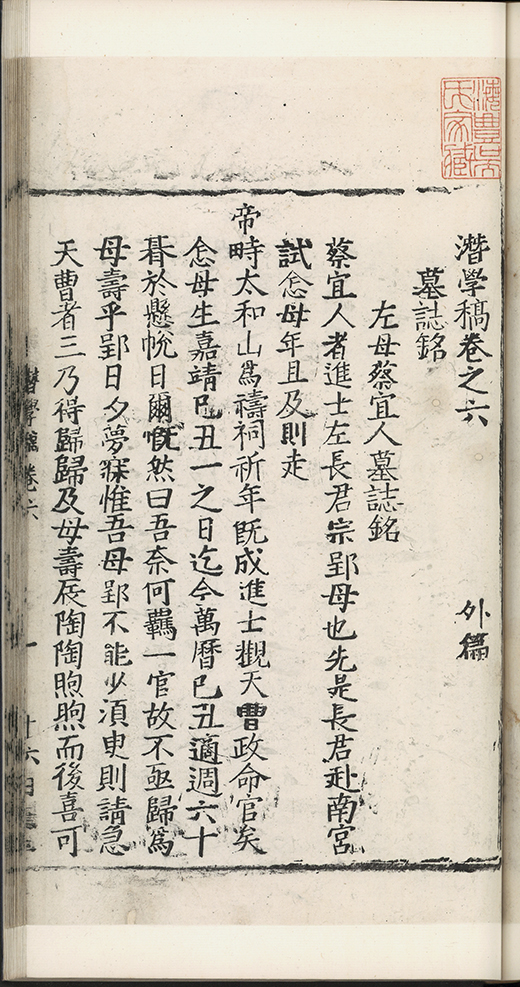 潛學稿卷之六
外篇
墓誌銘
左母蔡宜人墓誌銘
蔡宜人者進士左長君宗郢母也先是長君赴南宮
試念母年且及則走
帝時太和山爲禱祠祈年既成進士觀天曹政命官矣
念母生嘉靖己丑一之日迄今萬曆己丑適週六十
朞於懸帨日爾慨然曰吾奈何羈一官故不亟歸爲
母壽乎郢日夕夢寐惟吾母郢不能少須臾則請急
天曹者三乃得歸歸及母壽辰陶陶煦煦而後喜可
潛學稿卷六
一